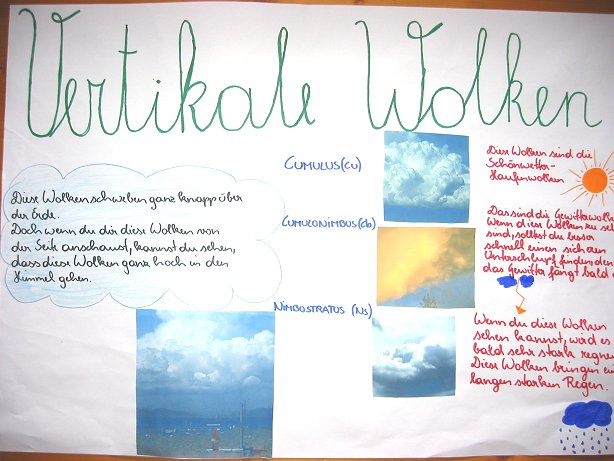 Vertikale Wolken
Diese Wolken schweben ganz knapp über
der Erde.
Doch wenn du dir diese Wolken von
der Seite anschaust, kannst du sehen,
dass diese Wolken ganz hoch in den
Himmel gehen.
CUMULUS (CU)
Diese Wolken sind die
Schönwetter-
Haufenwolken
CUMULONIMBUS (Cb)
Das sind die Gewitterwolken
Wenn diese Wolken zu
sind, solltest du besser
schnell einen sicheren
Unterschlupf finden, denn
das Gewitter fängt bald
NIMBOSTRATUS (Ns)
Wenn du diese Wolken
sehen kannst, wird es
bald sehr stark
Diese Wolken bringen
langen starken Regen.